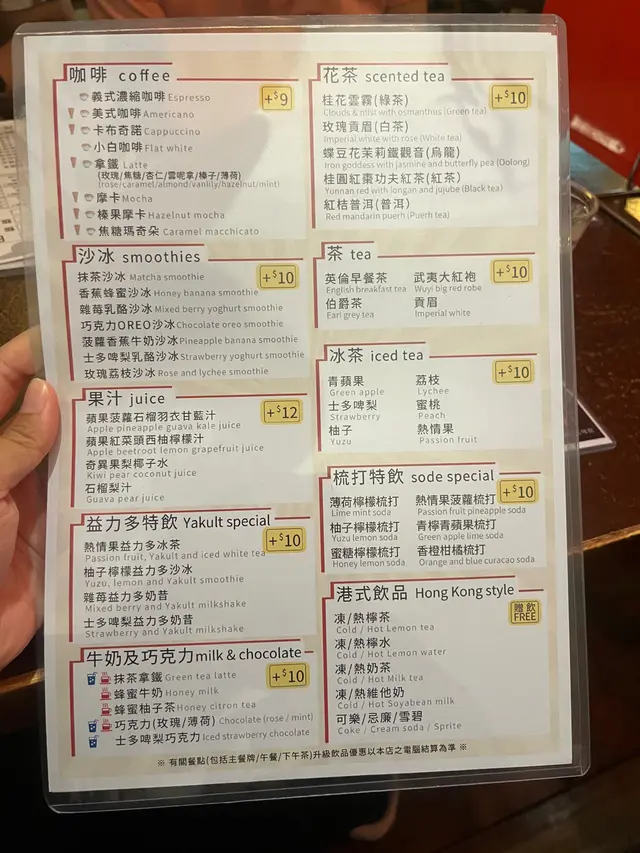 咖啡 coffee
+$9
義式濃縮咖啡 Espresso
美式咖啡 Americano
卡布奇諾 Cappuccino
小白咖啡 Flat white
拿鐵 Latte
(玫瑰/焦糖/杏仁/雲呢拿/榛子/薄荷)
(rose/caramel/almond/vanlily/hazelnut/mint)
摩卡 Mocha
榛果摩卡 Hazelnut mocha
焦糖瑪奇朵 Caramel macchicato
沙冰 smoothies
+$10
抹茶沙冰 Matcha smoothie
香蕉蜂蜜沙冰 Honey banana smoothie
雜莓乳酪沙冰 Mixed berry yoghurt smoothie
巧克力OREO沙冰 Chocolate oreo smoothie
菠蘿香蕉牛奶沙冰 Pineapple banana smoothie
士多啤梨乳酪沙冰 Strawberry yoghurt smoothie
玫瑰荔枝沙冰 Rose and lychee smoothie
果汁 juice
+$12
蘋果菠蘿石榴羽衣甘藍汁
Apple pineapple guava kale juice
蘋果紅菜頭西柚檸檬汁
Apple beetroot lemon grapefruit juice
奇異果梨椰子水
Kiwi pear coconut juice
石榴梨汁
Guava pear juice
益力多特飲 Yakult special
+$10
熱情果益力多冰茶
Passion fruit, Yakult and iced white tea
柚子檸檬益力多沙冰
Yuzu, lemon and Yakult smoothie
雜莓益力多奶昔
Mixed berry and Yakult milkshake
士多啤梨益力多奶昔
Strawberry and Yakult milkshake
牛奶及巧克力 milk & chocolate
+$10
抹茶拿鐵 Green tea latte
蜂蜜牛奶 Honey milk
蜂蜜柚子茶 Honey citron tea
巧克力(玫瑰/薄荷) Chocolate (rose / mint)
士多啤梨巧克力 Iced strawberry chocolate
花茶 scented tea
+$10
桂花雲霧(綠茶)
Clouds & mist with osmanthus (Green tea)
玫瑰貢眉(白茶)
Imperial white with rose (White tea)
蝶豆花茉莉鐵觀音(烏龍)
Iron goddess with jasmine and butterfly pea (Oolong)
桂圓紅棗功夫紅茶(紅茶)
Yunnan red with longan and jujube (Black tea)
紅桔普洱(普洱)
Red mandarin puerh (Puerh tea)
茶 tea
+$10
英倫早餐茶 武夷大紅袍
English breakfast tea Wuyi big red robe
伯爵茶 貢眉
Earl grey tea Imperial white
冰茶 iced tea
+$10
青蘋果 荔枝
Green apple Lychee
士多啤梨 蜜桃
Strawberry Peach
柚子 熱情果
Yuzu Passion fruit
梳打特飲 sode special
+$10
薄荷檸檬梳打 熱情果菠蘿梳打
Lime mint soda Passion fruit pineapple soda
柚子檸檬梳打 青檸青蘋果梳打
Yuzu lemon soda Green apple lime soda
蜜糖檸檬梳打 香橙柑橘梳打
Honey lemon soda Orange and blue curacao soda
港式飲品 Hong Kong style
贈飲
FREE
凍/熱檸茶
Cold / Hot Lemon tea
凍/熱檸水
Cold / Hot Lemon water
凍/熱奶茶
Cold / Hot Milk tea
凍/熱維他奶
Cold / Hot Soyabean milk
可樂/忌廉/雪碧
Coke / Cream soda / Sprite
※ 有關餐點(包括主餐牌/午餐/下午茶)升級飲品優惠以本店之電腦結算為準 ※